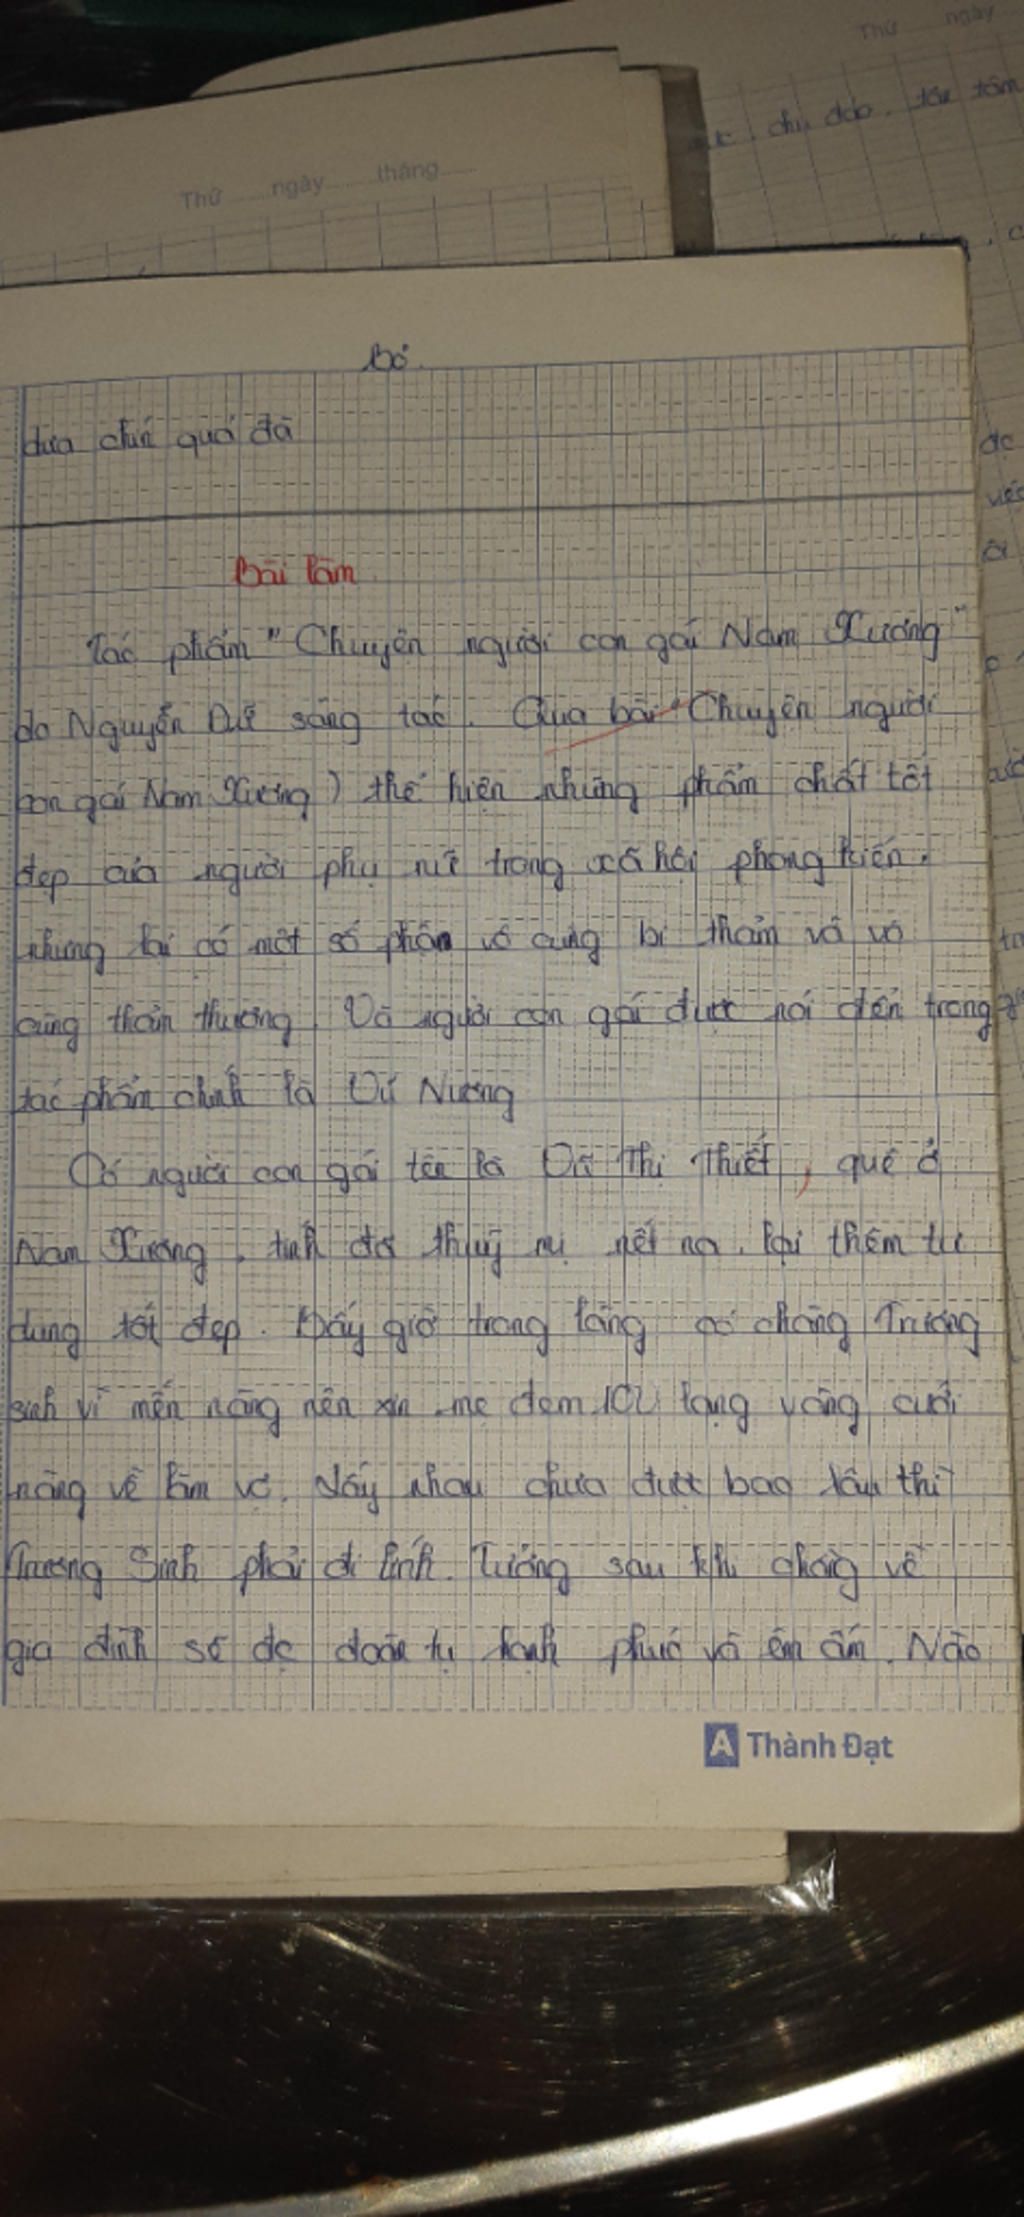 Thứ ngày
chu đáo, tần tâm
Thứ ngày tháng
Bố
đưa chú quá đã
Bài làm
Tác phẩm "Chuyện người con gái Nam Xương"
do Nguyễn Dữ sáng tác. Qua bài "Chuyện người
con gái Nam Xương) thể hiện những phẩm chất tốt
đẹp của người phụ nữ trong xã hội phong kiến.
nhưng lại có một số phận vô cùng bi thảm và vô
cùng thảm thương. Và người con gái được nói đến trong
tác phẩm chính là Vũ Nương
Có người con gái tên là Vũ Thị Thiết, quê ở
Nam Xương, tính đã thuỳ mị nết na, lại thêm tư
dung tốt đẹp. Bấy giờ trong làng có chàng Trương
sinh vì mến nàng nên xin mẹ đem 100 lạng vàng cưới
nàng về làm vợ. Lấy nhau chưa được bao lâu thì
Trương Sinh phải đi lính. Tưởng sau khi chàng về
gia đình sẽ đc đoàn tụ hạnh phúc và êm ấm. Nào
A Thành Đạt